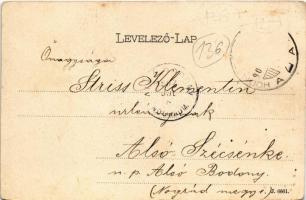 LEVELEZŐ-LAP
126
Őnagysága
Striss Klementin
urleánynak
Alsó Szécsénke
u.p Alsó Bodony.
(Nógrád megye.)